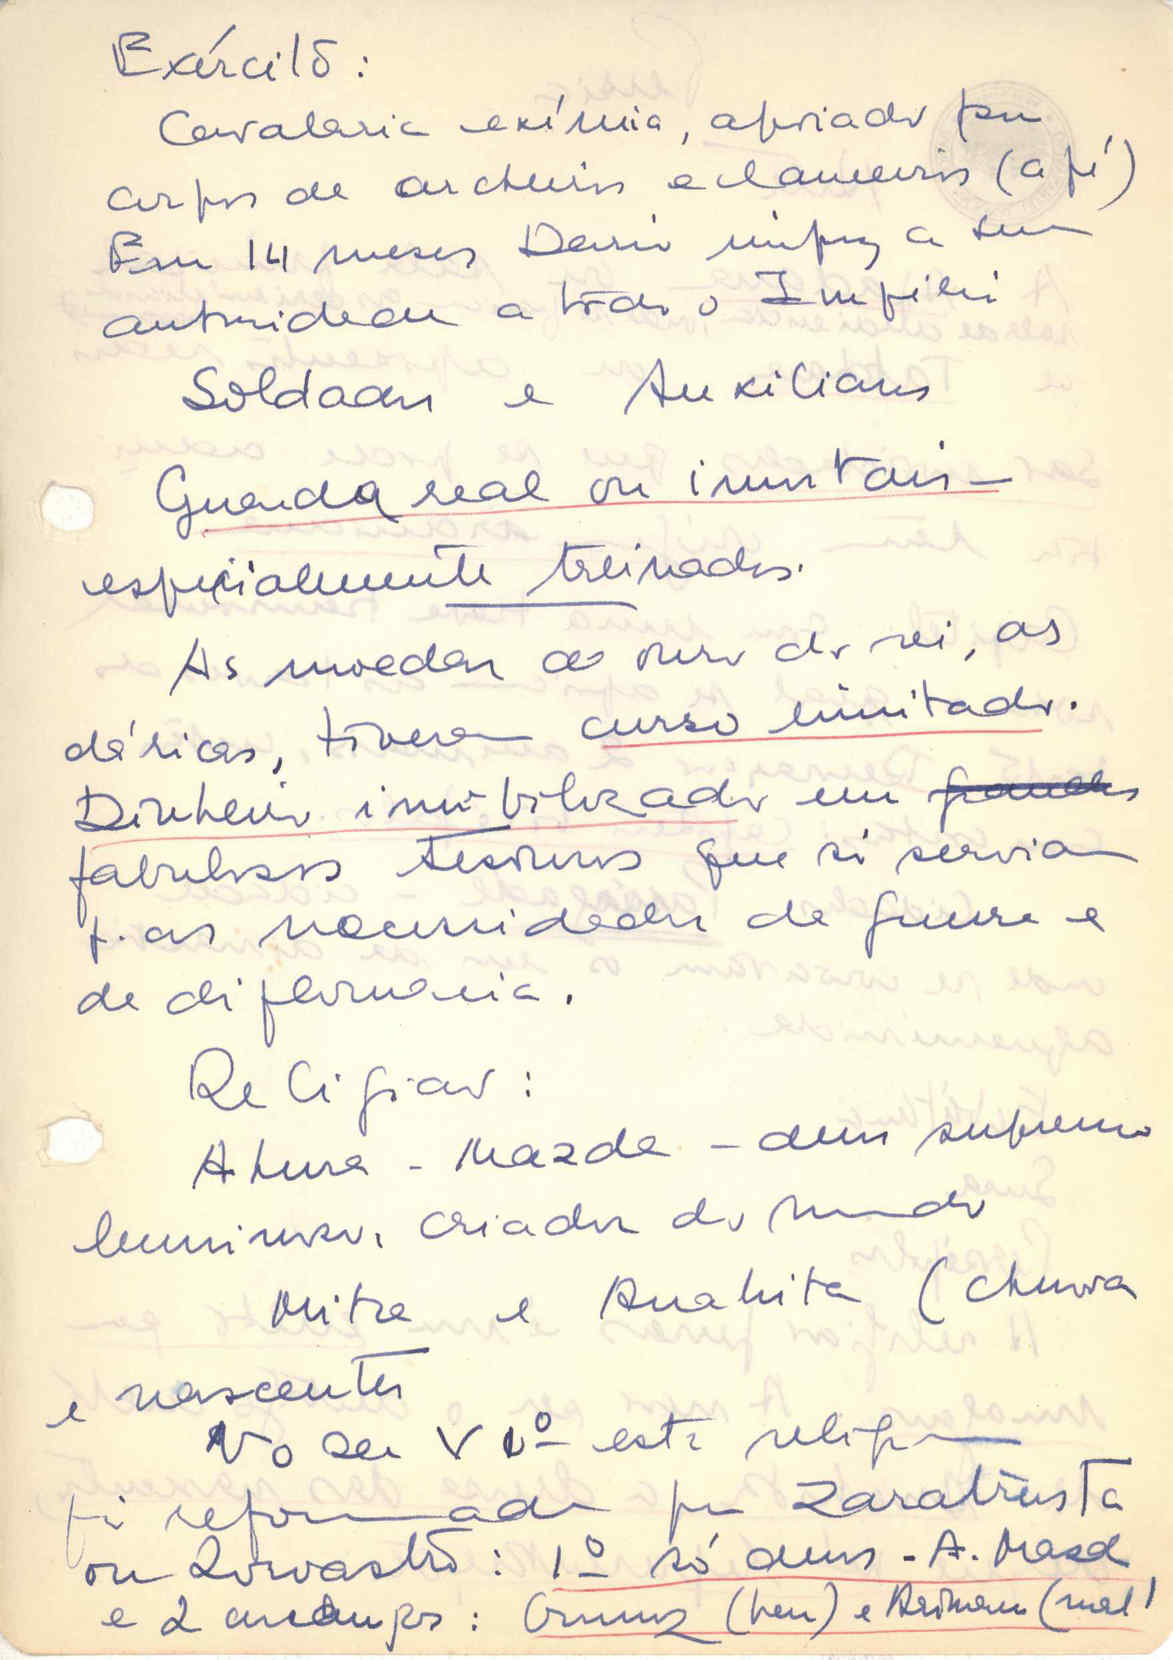 Exército:
Cavalaria exímia, apoiado por
corpos de archeiros e lanceiros (a pé)
Em 14 meses Dario impoz a sua
autoridade a todo o Império
Soldados e Auxiliares
Guarda real ou imortais –
especialmente treinados.
As moedas de ouro do rei, as
dáricas, tiveram curso limitado.
Dinheiro imobilizado em grandes
fabulosos tesouros que só serviam
p. as necessidades da guerra e
da diplomacia.
Religiao:
Ahura - Mazda – deus supremo
luminoso, criador do mundo
Mitra e Anahita (chuva
e nascentes
No sec VIº esta religiao
foi reformada por Zaratrusta
ou Zoroastro: 1º só deus - A. Mazd
e 2 archanjos: Ormuz (bem) e Ariman (mal)